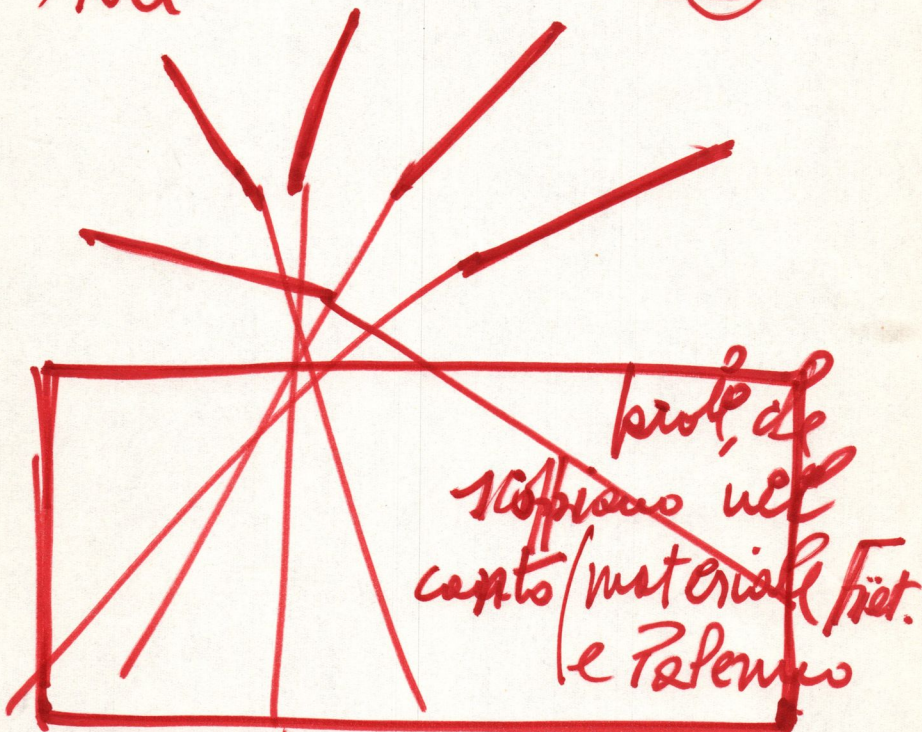 parole, che
scoppiano nel
canto (materiale Friet.
e Palermo